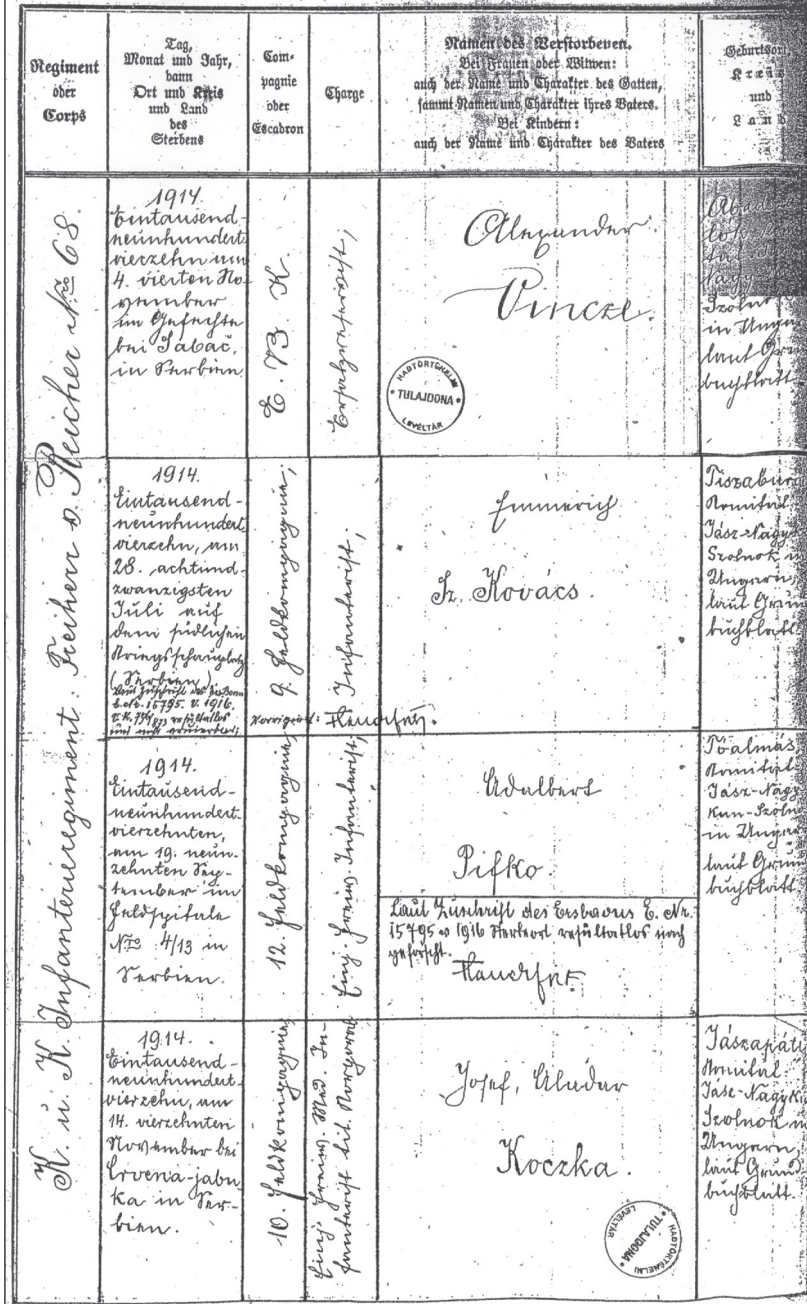 Regiment
oder
Corps
Tag,
Monat und Jahr,
dann
Ort und Kreis
und Land
des
Sterbens
Com-
pagnie
oder
Escadron
Charge
Namen des Verstorbenen.
Bei Frauen oder Witwen:
auch der Name und Charakter des Gatten,
sammt Namen und Charakter ihres Vaters.
Bei Kindern:
auch der Name und Charakter des Vaters
Geburtsort,
Kreis
und
Land
K. u. K. Infanterieregiment: Freiherr v. Reicher Nro 68.
1914.
Eintausend-
neunhundert
vierzehn am
4. vierten No-
vember
im Gefechte
bei Sabač,
in Serbien
E. B. K.
Ersatzreservist,
Alexander
Vincze.
HADTÖRTÉNELMI
* TULAJDONA *
LEVÉLTÁR
Szolnok
in Ungarn
laut Grund
buchblatt
1914.
Eintausend-
neunhundert
vierzehn, am
28. achtund-
zwanzigsten
Juli auf
dem südlichen
Kriegsschauplatz
(Serbien)
15795. v. 1916.
9. Feldkompagnie,
Infanterist,
Emmerich
Sz. Kovács.
Tiszabura
Komitat
Jász-Nagy
Szolnok in
Ungarn,
laut Grun
buchblatt
korrigiert:
1914.
Eintausend-
neunhundert-
vierzehnten,
am 19. neun-
zehnten Sep-
tember im
Feldspitale
Nro 4/13 in
Serbien.
12. Feldkompagnie,
Einj. Freiw. Infanterist,
Adalbert
Pifko.
Laut Zuschrift des Ersbaons E. Nr.
15795 v 1916 Sterbeort resultatlos nach
geforscht.
Tóalmás
Komitat
Jász-Nagy
Kun-Szolno
in Ungar
laut Grun
buchblatt
1914.
Eintausend-
neunhundert-
vierzehn, am
14. vierzehnten
November bei
Crvena-jabu
ka in Ser-
bien.
10. Feldkompagnie,
Einj. Freiw. Med. In-
fanterist tit. Korporal
Josef, Aladar
Koczka.
HADTÖRTÉNELMI
* TULAJDONA *
LEVÉLTÁR
Jászapáti
Komitat
Jász-Nagyk
Szolnok in
Ungarn,
laut Grund
buchblatt.